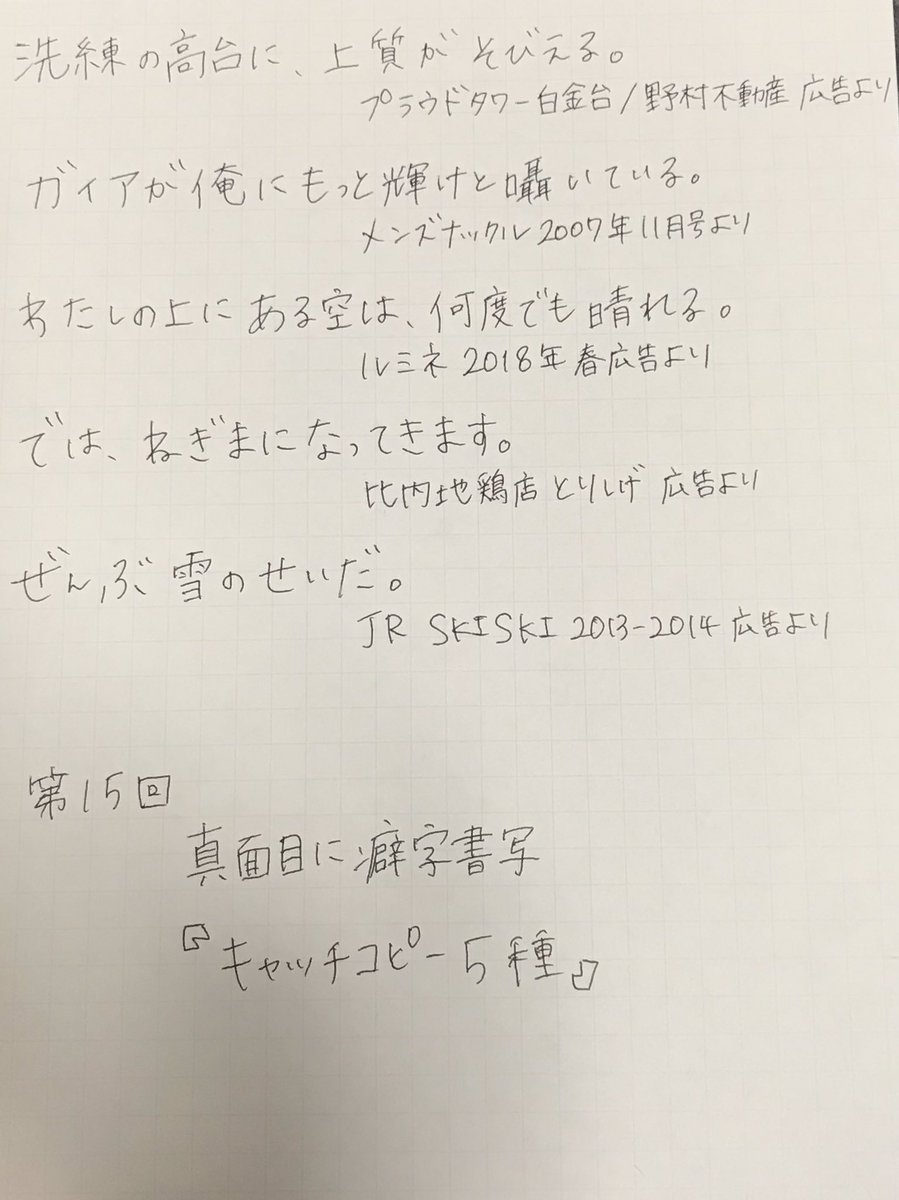 洗練の高台に、上質がそびえる。
プラウドタワー白金台/野村不動産 広告より
ガイアが俺にもっと輝けと囁いている。
メンズナックル 2007年11月号より
わたしの上にある空は、何度でも晴れる。
ルミネ 2018年 春広告より
では、ねぎまになってきます。
比内地鶏店 とりしげ 広告より
ぜんぶ雪のせいだ。
JR SKISKI 2013-2014 広告より
第15回
真面目に癖字書写
『キャッチコピー5種』